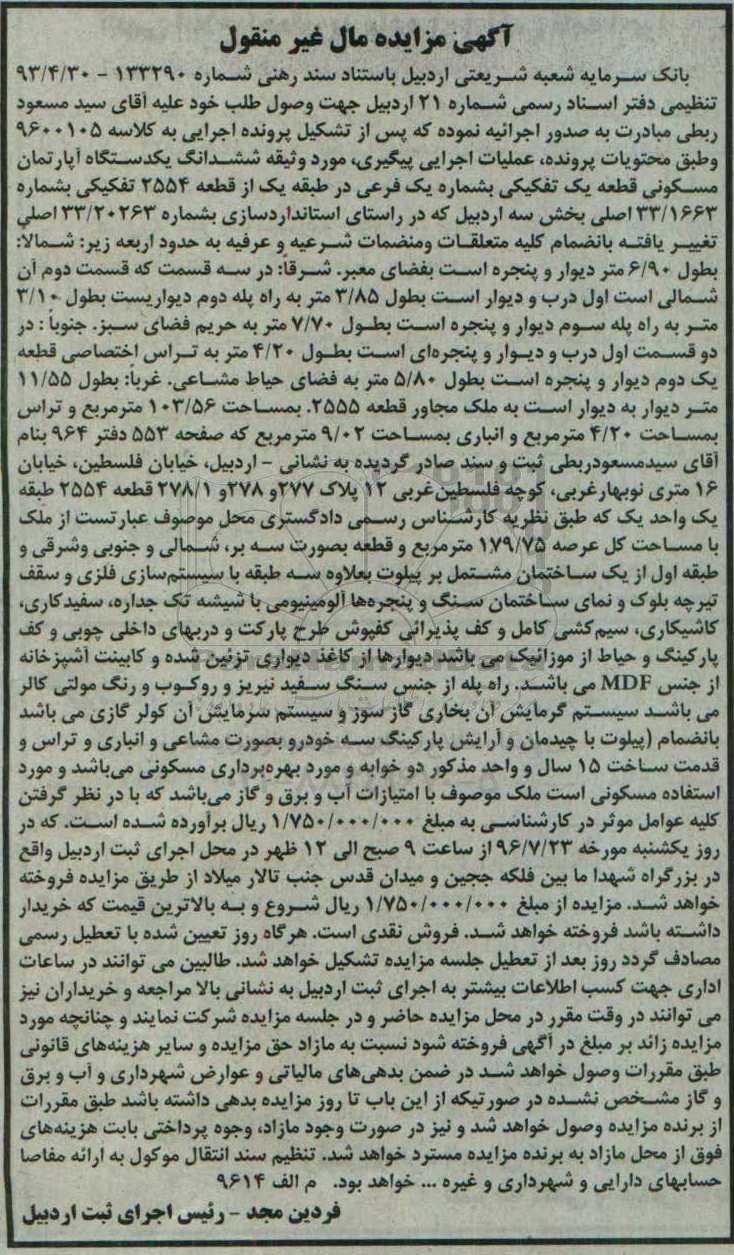 آگهی مزایده مال غیر منقول
بانک سرمایه شعبه شریعتی اردبیل باستناد سند رهنی شماره ۱۳۳۲۹۰ - ۹۳/۴/۳۰
تنظیمی دفتر اسناد رسمی شماره ۲۱ اردبیل جهت وصول طلب خود علیه آقای سید مسعود
ربطی مبادرت به صدور اجرائیه نموده که پس از تشکیل پرونده اجرایی به کلاسه ۹۶۰۰۱۰۵
وطبق محتویات پرونده، عملیات اجرایی پیگیری، مورد وثیقه ششدانگ یکدستگاه آپارتمان
مسکونی قطعه یک تفکیکی بشماره یک فرعی در طبقه یک از قطعه ۲۵۵۴ تفکیکی بشماره
۳۳/۱۶۶۳ اصلی بخش سه اردبیل که در راستای استانداردسازی بشماره ۳۳/۲۰۲۶۳ اصلی
تغییر یافته بانضمام کلیه متعلقات ومنضمات شرعیه و عرفیه به حدود اربعه زیر: شمالا:
بطول ۶/۹۰ متر دیوار و پنجره است بفضای معبر. شرقاً: در سه قسمت که قسمت دوم آن
شمالی است اول درب و دیوار است بطول ۳/۸۵ متر به راه پله دوم دیواریست بطول ۳/۱۰
متر به راه پله سوم دیوار و پنجره است بطول ۷/۷۰ متر به حریم فضای سبز. جنوباً : در
دو قسمت اول درب و دیوار و پنجره‌ای است بطول ۴/۲۰ متر به تراس اختصاصی قطعه
یک دوم دیوار و پنجره است بطول ۵/۸۰ متر به فضای حیاط مشاعی. غرباً: بطول ۱۱/۵۵
متر دیوار به دیوار است به ملک مجاور قطعه ۲۵۵۵. بمساحت ۱۰۳/۵۶ مترمربع و تراس
بمساحت ۴/۲۰ مترمربع و انباری بمساحت ۹/۰۲ مترمربع که صفحه ۵۵۳ دفتر ۹۶۴ بنام
آقای سیدمسعودربطی ثبت و سند صادر گردیده به نشانی - اردبیل، خیابان فلسطین، خیابان
۱۶ متری نوبهارغربی، کوچه فلسطین‌غربی ۱۲ پلاک ۲۷۷و ۲۷۸و ۲۷۸/۱ قطعه ۲۵۵۴ طبقه
یک واحد یک که طبق نظریه کارشناس رسمی دادگستری محل موصوف عبارتست از ملک
با مساحت کل عرصه ۱۷۹/۷۵ مترمربع و قطعه بصورت سه بر، شمالی و جنوبی وشرقی و
طبقه اول از یک ساختمان مشتمل بر پیلوت بعلاوه سه طبقه با سیستم‌سازی فلزی و سقف
تیرچه بلوک و نمای ساختمان سنگ و پنجره‌ها آلومینیومی با شیشه تک جداره، سفیدکاری،
کاشیکاری، سیم‌کشی کامل و کف پذیرائی کفپوش طرح پارکت و دربهای داخلی چوبی و کف
پارکینگ و حیاط از موزائیک می باشد دیوارها از کاغذ دیواری تزئین شده و کابینت آشپزخانه
از جنس MDF می باشد. راه پله از جنس سنگ سفید نیریز و روکوب و رنگ مولتی کالر
می باشد سیستم گرمایش آن بخاری گاز سوز و سیستم سرمایش آن کولر گازی می باشد
بانضمام (پیلوت با چیدمان و آرایش پارکینگ سه خودرو بصورت مشاعی و انباری و تراس و
قدمت ساخت ۱۵ سال و واحد مذکور دو خوابه و مورد بهره‌برداری مسکونی می‌باشد و مورد
استفاده مسکونی است ملک موصوف با امتیازات آب و برق و گاز می‌باشد که با در نظر گرفتن
کلیه عوامل موثر در کارشناسی به مبلغ ۱/۷۵۰/۰۰۰/۰۰۰ ریال برآورده شده است. که در
روز یکشنبه مورخه ۹۶/۷/۲۳ از ساعت ۹ صبح الی ۱۲ ظهر در محل اجرای ثبت اردبیل واقع
در بزرگراه شهدا ما بین فلکه ججین و میدان قدس جنب تالار میلاد از طریق مزایده فروخته
خواهد شد. مزایده از مبلغ ۱/۷۵۰/۰۰۰/۰۰۰ ریال شروع و به بالاترین قیمت که خریدار
داشته باشد فروخته خواهد شد. فروش نقدی است. هرگاه روز تعیین شده با تعطیل رسمی
مصادف گردد روز بعد از تعطیل جلسه مزایده تشکیل خواهد شد. طالبین می توانند در ساعات
اداری جهت کسب اطلاعات بیشتر به اجرای ثبت اردبیل به نشانی بالا مراجعه و خریداران نیز
می توانند در وقت مقرر در محل مزایده حاضر و در جلسه مزایده شرکت نمایند و چنانچه مورد
مزایده زائد بر مبلغ در آگهی فروخته شود نسبت به مازاد حق مزایده و سایر هزینه‌های قانونی
طبق مقررات وصول خواهد شد در ضمن بدهی‌های مالیاتی و عوارض شهرداری و آب و برق
و گاز مشخص نشده در صورتیکه از این باب تا روز مزایده بدهی داشته باشد طبق مقررات
از برنده مزایده وصول خواهد شد و نیز در صورت وجود مازاد، وجوه پرداختی بابت هزینه‌های
فوق از محل مازاد به برنده مزایده مسترد خواهد شد. تنظیم سند انتقال موکول به ارائه مفاصا
حسابهای دارایی و شهرداری و غیره ... خواهد بود. م الف ۹۶۱۴
فردین مجد - رئیس اجرای ثبت اردبیل